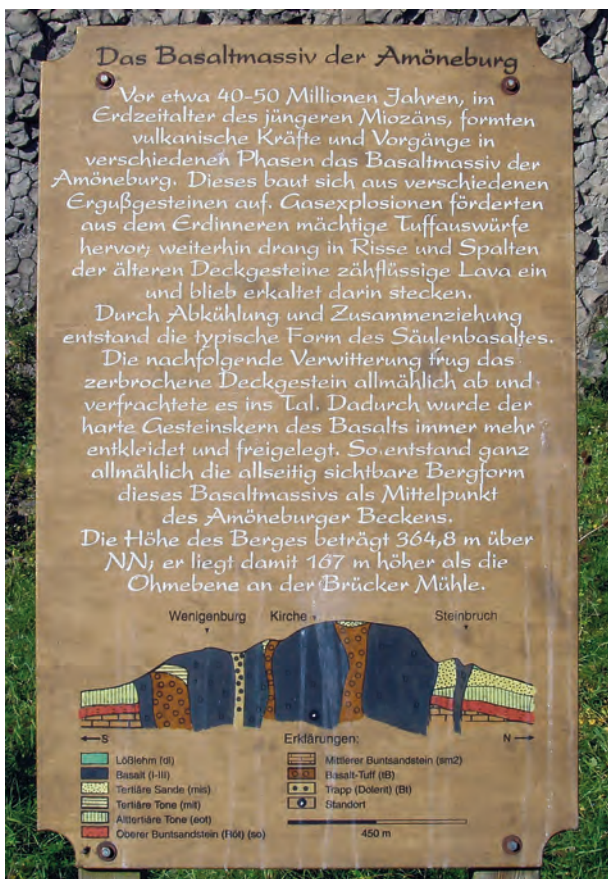 Das Basaltmassiv der Amöneburg
Vor etwa 40-50 Millionen Jahren, im
Erdzeitalter des jüngeren Miozäns, formten
vulkanische Kräfte und Vorgänge in
verschiedenen Phasen das Basaltmassiv der
Amöneburg. Dieses baut sich aus verschiedenen
Ergußgesteinen auf. Gasexplosionen förderten
aus dem Erdinneren mächtige Tuffauswürfe
hervor; weiterhin drang in Risse und Spalten
der älteren Deckgesteine zähflüssige Lava ein
und blieb erkaltet darin stecken.
Durch Abkühlung und Zusammenziehung
entstand die typische Form des Säulenbasaltes.
Die nachfolgende Verwitterung trug das
zerbrochene Deckgestein allmählich ab und
verfrachtete es ins Tal. Dadurch wurde der
harte Gesteinskern des Basalts immer mehr
entkleidet und freigelegt. So entstand ganz
allmählich die allseitig sichtbare Bergform
dieses Basaltmassivs als Mittelpunkt
des Amöneburger Beckens.
Die Höhe des Berges beträgt 364,8 m über
NN; er liegt damit 167 m höher als die
Ohmebene an der Brücker Mühle.
Wenigenburg Kirche Steinbruch
S Erklärungen: N
Lößlehm (dl)
Basalt (I-III)
Tertiäre Sande (mis)
Tertiäre Tone (mit)
Alttertiäre Tone (eot)
Oberer Buntsandstein (Röt) (so)
Mittlerer Buntsandstein (sm2)
Basalt-Tuff (tB)
Trapp (Dolerit) (Bt)
Standort
450 m